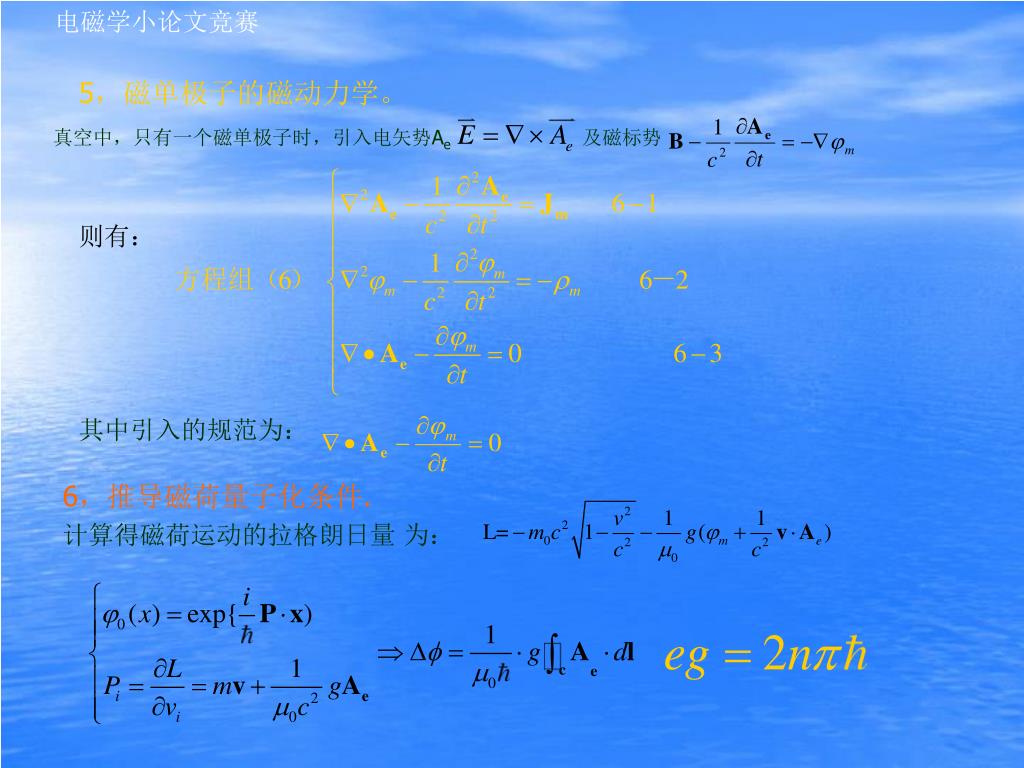 电磁学小论文竞赛
5，磁单极子的磁动力学。
真空中，只有一个磁单极子时，引入电矢势Aₑ $\vec{E} = \nabla \times \vec{A_e}$ 及磁标势 $\mathbf{B} - \frac{1}{c^2}\frac{\partial \mathbf{A_e}}{\partial t} = -\nabla \varphi_m$
则有：
方程组（6）
$\nabla^2 \mathbf{A}_e - \frac{1}{c^2}\frac{\partial^2 \mathbf{A}_e}{\partial t^2} = \mathbf{J}_m$ 6－1
$\nabla^2 \varphi_m - \frac{1}{c^2}\frac{\partial^2 \varphi_m}{\partial t^2} = -\rho_m$ 6－2
$\nabla \bullet \mathbf{A_e} - \frac{\partial \varphi_m}{\partial t} = 0$ 6－3
其中引入的规范为：
$\nabla \bullet \mathbf{A_e} - \frac{\partial \varphi_m}{\partial t} = 0$
6，推导磁荷量子化条件.
计算得磁荷运动的拉格朗日量 为： $L = -m_0 c^2 \sqrt{1 - \frac{v^2}{c^2}} - \frac{1}{\mu_0} g(\varphi_m + \frac{1}{c^2} \mathbf{v} \cdot \mathbf{A}_e)$
$\varphi_0(x) = \exp\{\frac{i}{\hbar} \mathbf{P} \cdot \mathbf{x})$
$P_i = \frac{\partial L}{\partial v_i} = m\mathbf{v} + \frac{1}{\mu_0 c^2} g\mathbf{A_e}$
$\Rightarrow \Delta \phi = \frac{1}{\mu_0 \hbar} \cdot g \oint_c \mathbf{A_e} \cdot d\mathbf{l}$
$eg = 2n\pi\hbar$